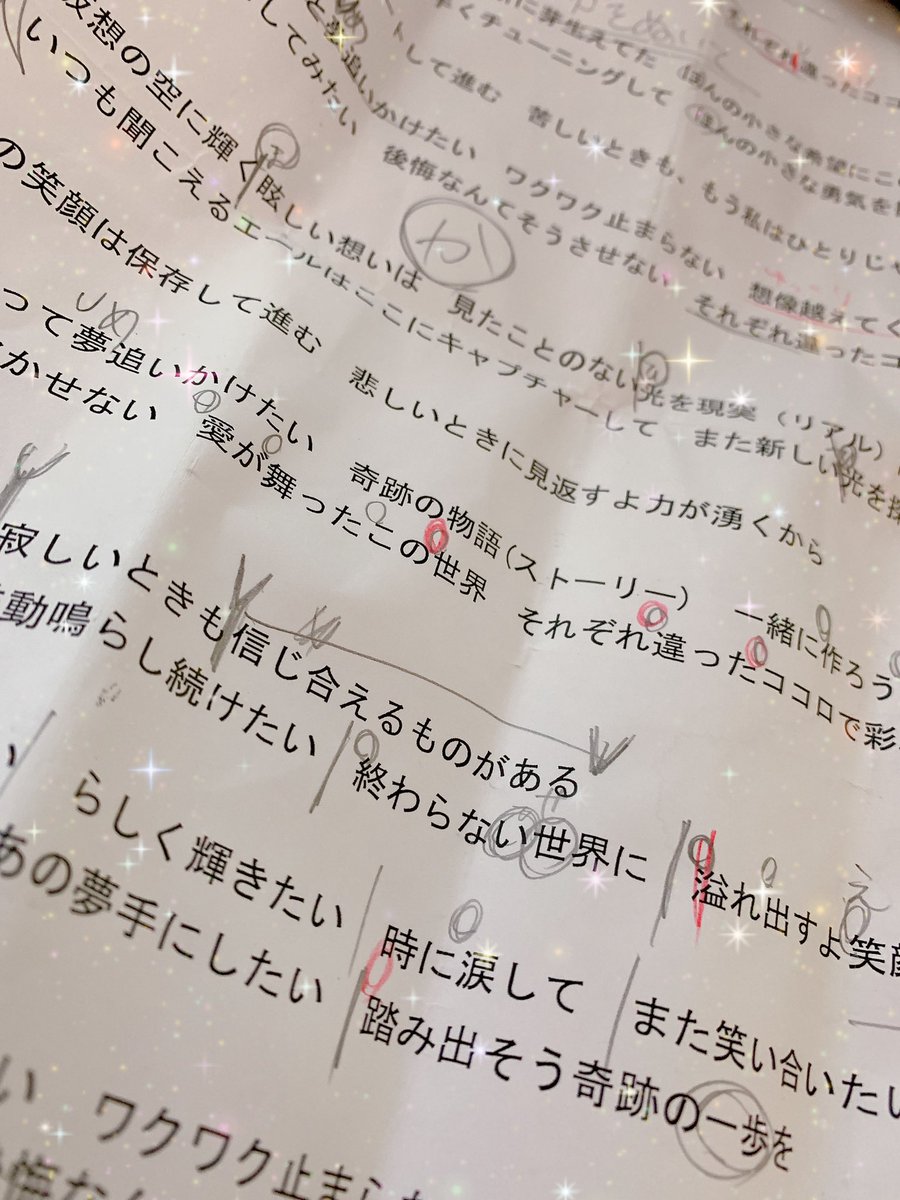 それぞれ違ったココ
に芽生えてた　ほんの小さな希望にこ
チューニングして　ほんの小さな勇気を
トして進む　苦しいときも、もう私はひとりじゃ
と夢追いかけたい　ワクワク止まらない　想像越えてく
してみたい　後悔なんてそうさせない　それぞれ違ったココ
か
仮想の空に輝く眩しい想いは　見たことのない光を現実（リアル）
いつも聞こえるエールはここにキャプチャーして　また新しい光を探
の笑顔は保存して進む　悲しいときに見返すよ力が湧くから
って夢追いかけたい　奇跡の物語(ストーリー)　一緒に作ろう
かせない　愛が舞ったこの世界　それぞれ違ったココロで彩
寂しいときも信じ合えるものがある
動鳴らし続けたい　終わらない世界に　溢れ出すよ笑顔
え
い　らしく輝きたい　時に涙して　また笑い合いたい
あの夢手にしたい　踏み出そう奇跡の一歩を
い　ワクワク止まら
悔な